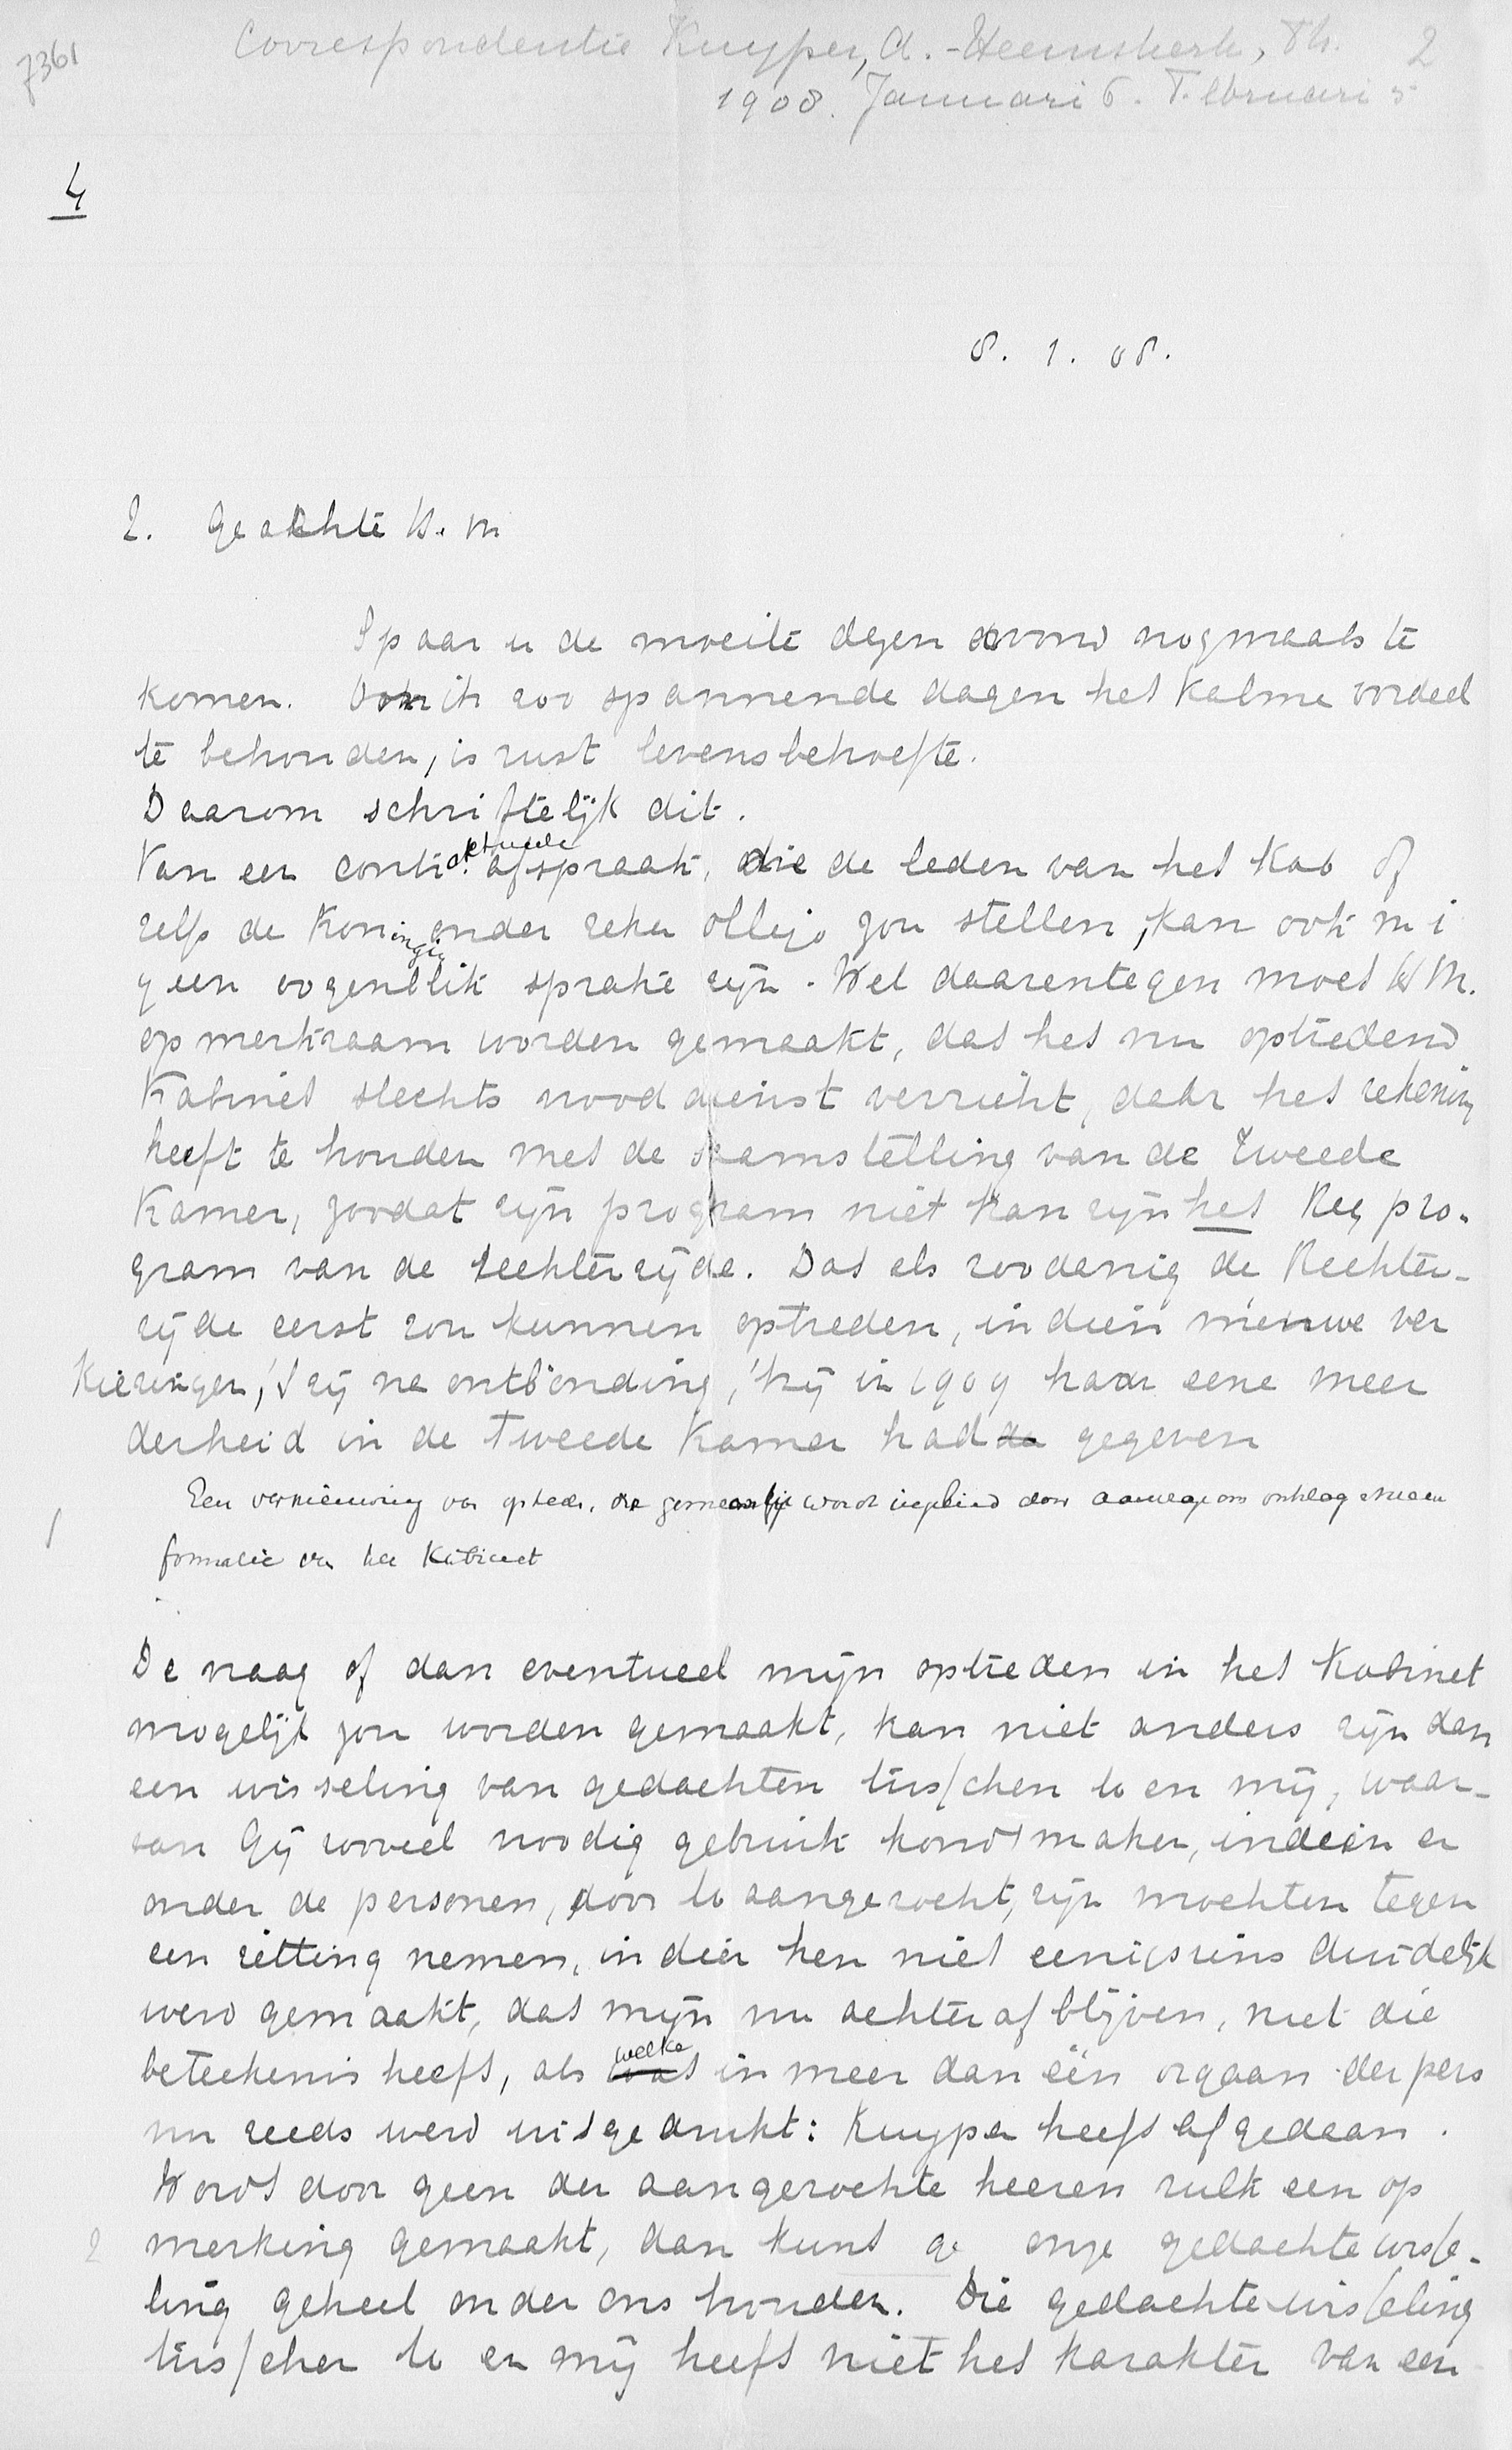 7361
Correspondentie Kuyper, A. - Heemskerk, Th. 2
1908. Januari 6. Februari 5
4
8. 1. 08.
2. Geachte H. M
Spaar u de moeite dezen avond nogmaals te
komen. Om in zoo spannende dagen het kalme oordeel
te behouden, is rust levensbehoefte.
Daarom schriftelijk dit.
Van een contraktueele afspraak, die de leden van het Kab of
zelfs de Koningin onder zeker obligo zou stellen, kan ook m i
geen oogenblik sprake zijn. Wel daarentegen moet H M.
opmerkzaam worden gemaakt, dat het nu optredend
Kabinet slechts nooddienst verricht, daar het rekening
heeft te houden met de saamstelling van de Tweede
Kamer, zoodat zijn program niet kan zijn het Reg pro-
gram van de rechterzijde. Dat als zoodanig de Rechter-
zijde eerst zou kunnen optreden, indien nieuwe ver
kiezingen, 't zij na ontbinding, 'tzij in 1909 haar eene meer
derheid in de Tweede Kamer had gegeven
1 Een vernieuwing van optreden, die gemeenlijk wordt ingeleid door aanvrage om ontslag
formatie van het Kabinet
De vraag of dan eventueel mijn optreden in het Kabinet
mogelijk zou worden gemaakt, kan niet anders zijn dan
een wisseling van gedachten tusschen U en mij, waar-
van Gij zooveel noodig gebruik kondt maken, indien er
onder de personen, door U aangezocht, zijn mochten tegen
een zitting nemen, indien hen niet eenigszins duidelijk
werd gemaakt, dat mijn nu achteraf blijven, niet die
beteekenis heeft, als welke in meer dan één orgaan der pers
nu reeds werd uitgedrukt: Kuyper heeft afgedaan.
Wordt door geen der aangezochte heeren zulk een op
2 merking gemaakt, dan kunt ge onze gedachtewisse-
ling geheel onder ons houden. Die gedachtewisseling
tusschen U en mij heeft niet het karakter van een